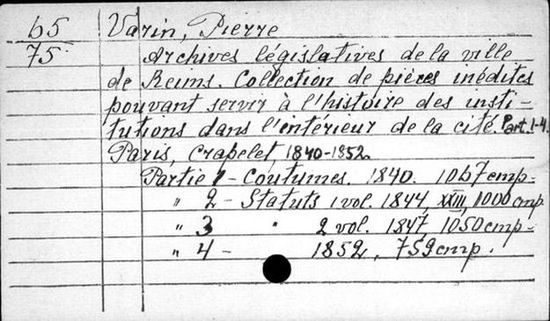 65 Varin, Pierre
75 Archives législatives de la ville
de Reims. Collection de pièces inédites
pouvant servir à l'histoire des insti-
tutions dans l'intérieur de la cité. Part. 1-4.
Paris, Crapelet, 1840-1852.
Partie 1 - Coutumes. 1840. 1067 cmp.
" 2 - Statuts 1 vol. 1844. XXIII, 1000 cmp.
" 3 " 2 vol. 1847. 1050 cmp.
" 4 - 1852. 759 cmp.